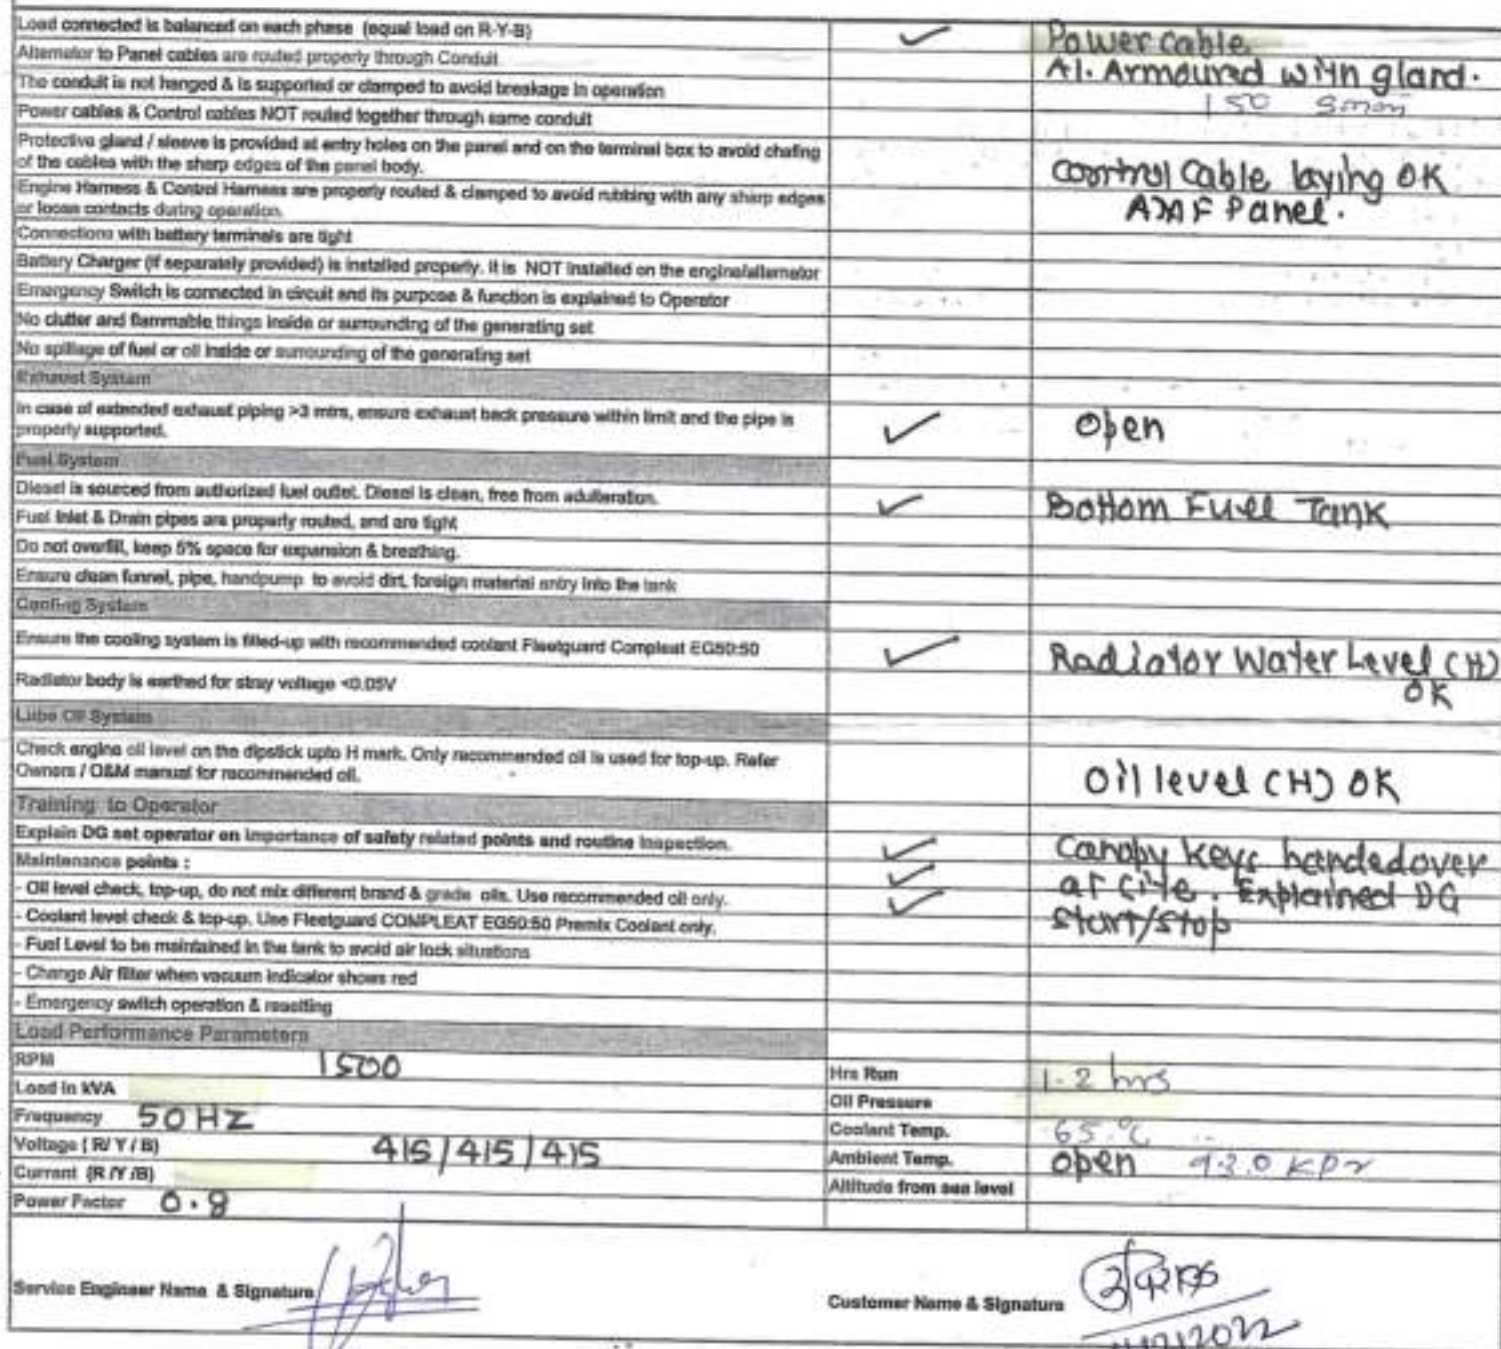 Load connected is balanced on each phase (equal load on R-Y-B)
Power cable
Alternator to Panel cables are routed properly through Conduit
Al. Armoured with gland.
The conduit is not hanged & is supported or clamped to avoid breakage in operation
150 Smm
Power cables & Control cables NOT routed together through same conduit
Protective gland / sleeve is provided at entry holes on the panel and on the terminal box to avoid chafing
of the cables with the sharp edges of the panel body.
Control Cable laying OK
Engine Harness & Control Harness are properly routed & clamped to avoid rubbing with any sharp edges
or loose contacts during operation.
Panel.
Connections with battery terminals are tight
Battery Charger (if separately provided) is installed properly. It is NOT installed on the engine/alternator
Emergency Switch is connected in circuit and its purpose & function is explained to Operator
No clutter and flammable things inside or surrounding of the generating set
No spillage of fuel or oil inside or surrounding of the generating set
Exhaust System
In case of extended exhaust piping >3 mtrs, ensure exhaust back pressure within limit and the pipe is
properly supported.
Open
Fuel System
Diesel is sourced from authorized fuel outlet. Diesel is clean, free from adulteration.
Bottom Fuel Tank
Fuel Inlet & Drain pipes are properly routed, and are tight
Do not overfill, keep 5% space for expansion & breathing.
Ensure clean funnel, pipe, handpump to avoid dirt, foreign material entry into the tank
Cooling System
Ensure the cooling system is filled-up with recommended coolant Fleetguard Compleat EG50:50
Radiator Water Level (H)
OK
Radiator body is earthed for stray voltage <0.05V
Lube Oil System
Check engine oil level on the dipstick upto H mark. Only recommended oil is used for top-up. Refer
Owners / O&M manual for recommended oil.
Oil level (H) OK
Training to Operator
Explain DG set operator on importance of safety related points and routine inspection.
Canopy Keys handedover
Maintenance points :
at Cite. Explained DG
- Oil level check, top-up, do not mix different brand & grade oils. Use recommended oil only.
start/stop
- Coolant level check & top-up. Use Fleetguard COMPLEAT EG50:50 Premix Coolant only.
- Fuel Level to be maintained in the tank to avoid air lock situations
- Change Air filter when vacuum indicator shows red
- Emergency switch operation & resetting
Load Performance Parameters
RPM 1500
Hrs Run 1.2 hrs
Load in kVA
Oil Pressure
Frequency 50 HZ
Coolant Temp. 65 °C
Voltage ( R/ Y / B) 415/415/415
Ambient Temp. Open
Current (R /Y /B)
Altitude from sea level
Power Factor 0.8
Service Engineer Name & Signature
Customer Name & Signature